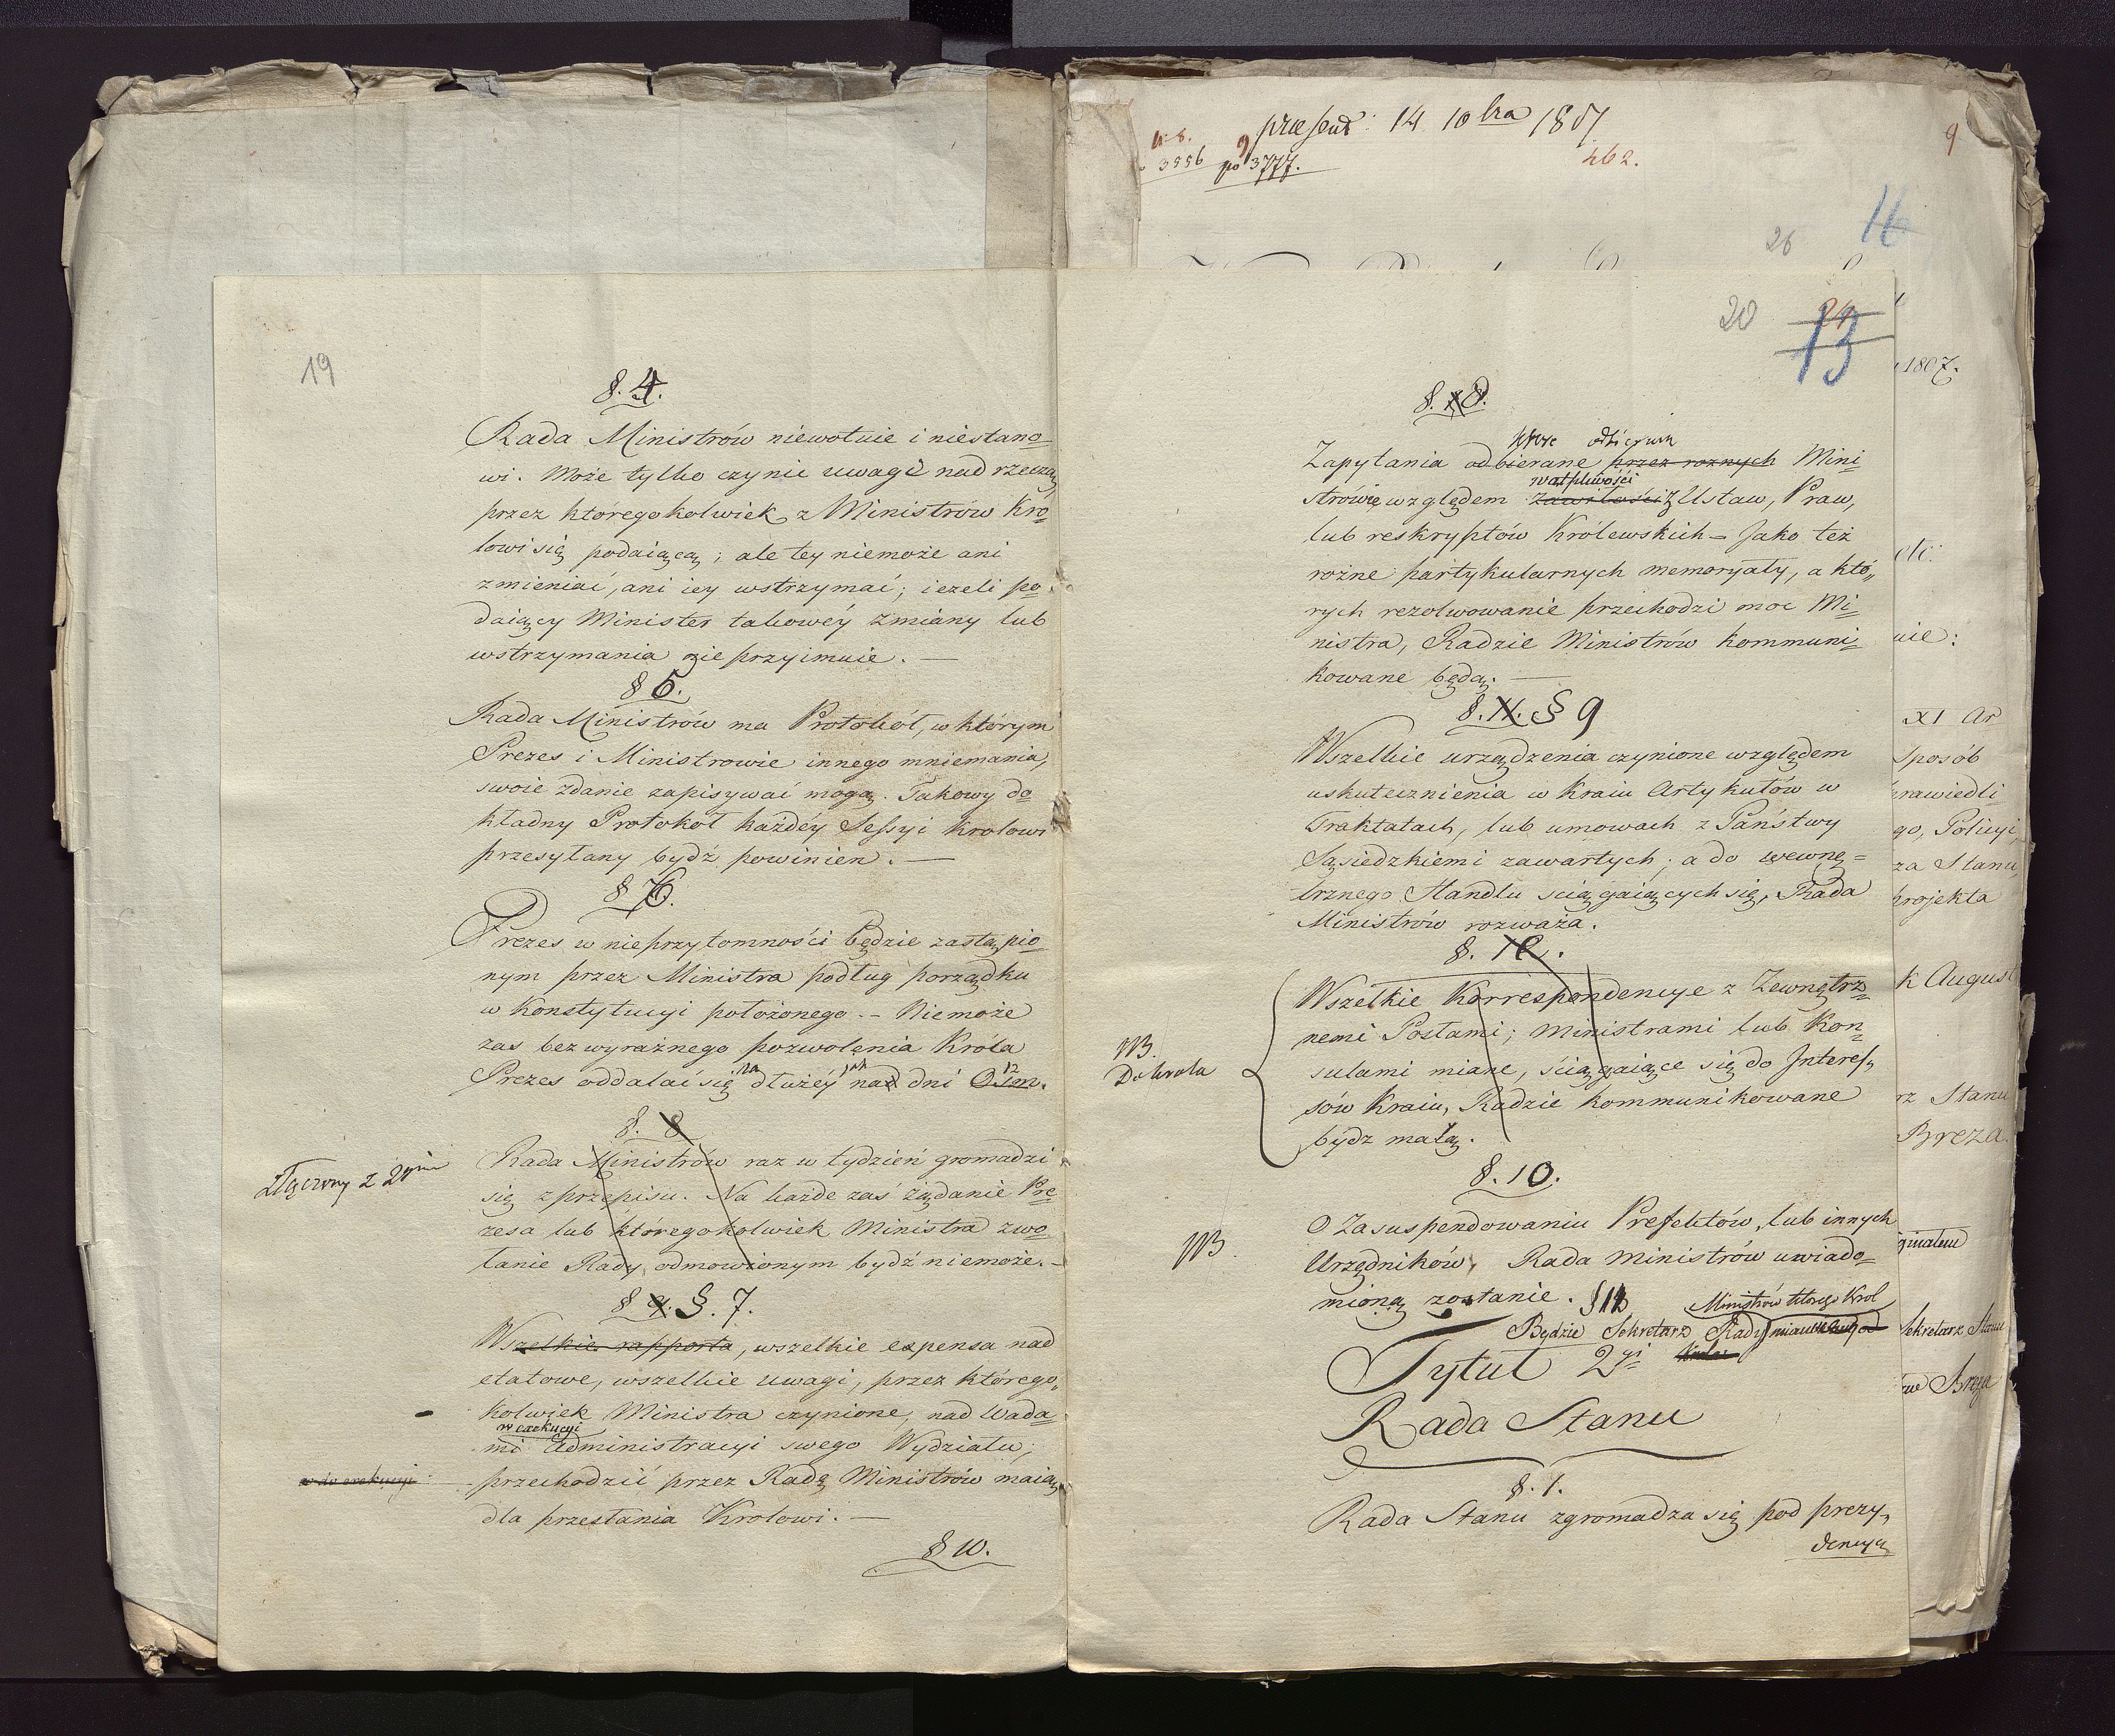 19
§. 4.
Rada Ministrów niewotuie i niestano=
wi. Może tylko czynic uwagi nad rzeczą
przez któregokolwiek z Ministrów Kró=
lowi się podaiącą; ale tey niemoże ani
zmieniać, ani iey wstrzymać; ieżeli po=
daiący Minister takowéy zmiany lub
wstrzymania nie przyimuie. —
§ 5.
Rada Ministrów ma Protokół, w którym
Prezes i Ministrowie innego mniemania,
swoie zdanie zapisywać mogą. Takowy do=
kładny Protokoł każdéy Sessyi Krolowi
przesyłany bydź powinien. —
§ 6.
Prezes w nieprzytomności będzie zastąpio=
nym przez Ministra podług porządku
w Konstytucyi położonego. – Niemoże
zas bez wyraźnego pozwolenia Króla
na jak 12
Prezes oddalać się dłużéy nad dni Osiem.
§. 8
złączony z 2gim
Rada Ministrów raz w tydzień gromadzi
się z przepisu. Na każde zaś żądanie Pre=
zesa lub któregokolwiek Ministra zwo=
łanie Rady odmowionym bydź niemoże. –
§ 9. §. 7.
Wszelkie rapporta, wszelkie expensa nad
etatowe, wszelkie uwagi, przez którego=
kolwiek Ministra czynione, nad wada=
w exekucyi
mi Administracyi swego Wydziału;
w do exekucyi
przechodzić przez Radę Ministrów maią
dla przesłania Krolowi. —
§ 10.
præsent: 14 10bra 1807
3556 po 3777.
462.
9
16
26
20
13
§. 8.
które odbieraia
Zapytania odbierane przez roznych Mini=
wątpliwości
strów względem zawiłości z Ustaw, Praw,
lub reskryptów Królewskich – Jako też
rożne partykularnych memoryały, a któ=
rych rezolwowanie przechodzi moc Mi=
nistra, Radzie Ministrów kommuni=
kowane będą. —
§. 11. § 9
Wszelkie urządzenia czynione względem
uskutecznienia w Kraiu Artykułów w
Traktatach, lub umowach z Państwy
Sąsiedzkiemi zawartych; a do wewnę=
trznego Handlu sciągaiących się, Rada
Ministrów rozważa.
§. 12.
NB.
Do krola
Wszelkie Korrespondencye z Zewnętrz=
nemi Posłami; Ministrami lub Kon=
sulami miane, ściągaiące się do Interes=
sów Kraiu, Radzie kommunikowane
bydz maią.
§. 10.
NB.
O Zasuspendowaniu Prefektów, lub innych
Urzędników, Rada Ministrów uwiado=
mioną zostanie. § 11
Ministrów którego Krol
Będzie Sekretarz Rady mianuie
Tytuł 2gi
Rada Stanu
§. 1.
Rada Stanu zgromadza się pod prezy=
dencyą
1807.
etc:
XI Ar
sposób
go, Policyi,
za Stanu
projekta
k August
rz Stanu
Breza.
Sekretarz Stanu
Breza